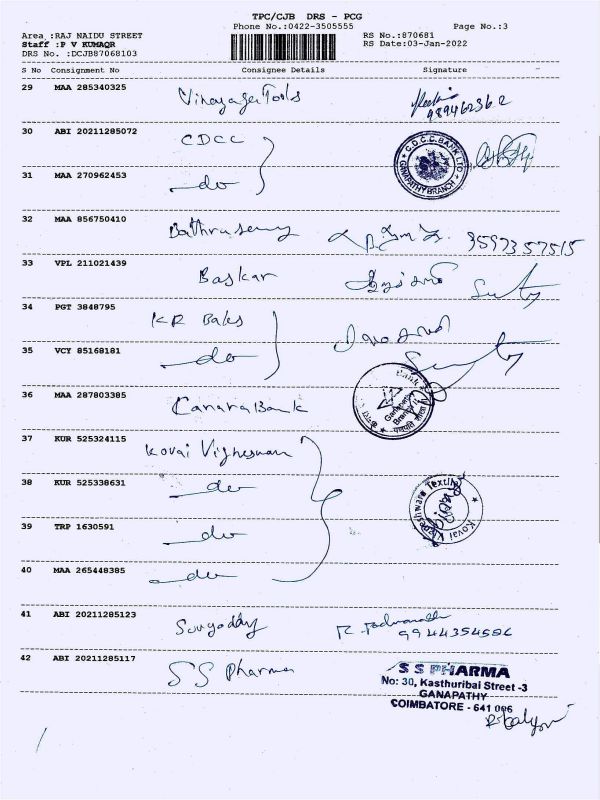 TPC/CJB DRS - PCG
Phone No.:0422-3505555 Page No.:3
Area :RAJ NAIDU STREET RS No.:870681
Staff :P V KUMAQR RS Date:03-Jan-2022
DRS No. :DCJB87068103
S No Consignment No Consignee Details Signature
29 MAA 285340325 Vinayaga Tools
30 ABI 20211285072 CDCC
C.D.C.C. BANK LTD.
GANAPATHY BRANCH
31 MAA 270962453 do
32 MAA 856750410 9597357515
33 VPL 211021439 Baskar
34 PGT 3848795 KR Baks
35 VCY 85168181 do
36 MAA 287803385 Canara Bank
37 KUR 525324115 Kovai Vigneswara
38 KUR 525338631 do
39 TRP 1630591 do
40 MAA 265448385 do
41 ABI 20211285123 R. Padmanabh
42 ABI 20211285117 SS Pharma
S S PHARMA
No: 30, Kasthuribai Street -3
GANAPATHY
COIMBATORE - 641 006